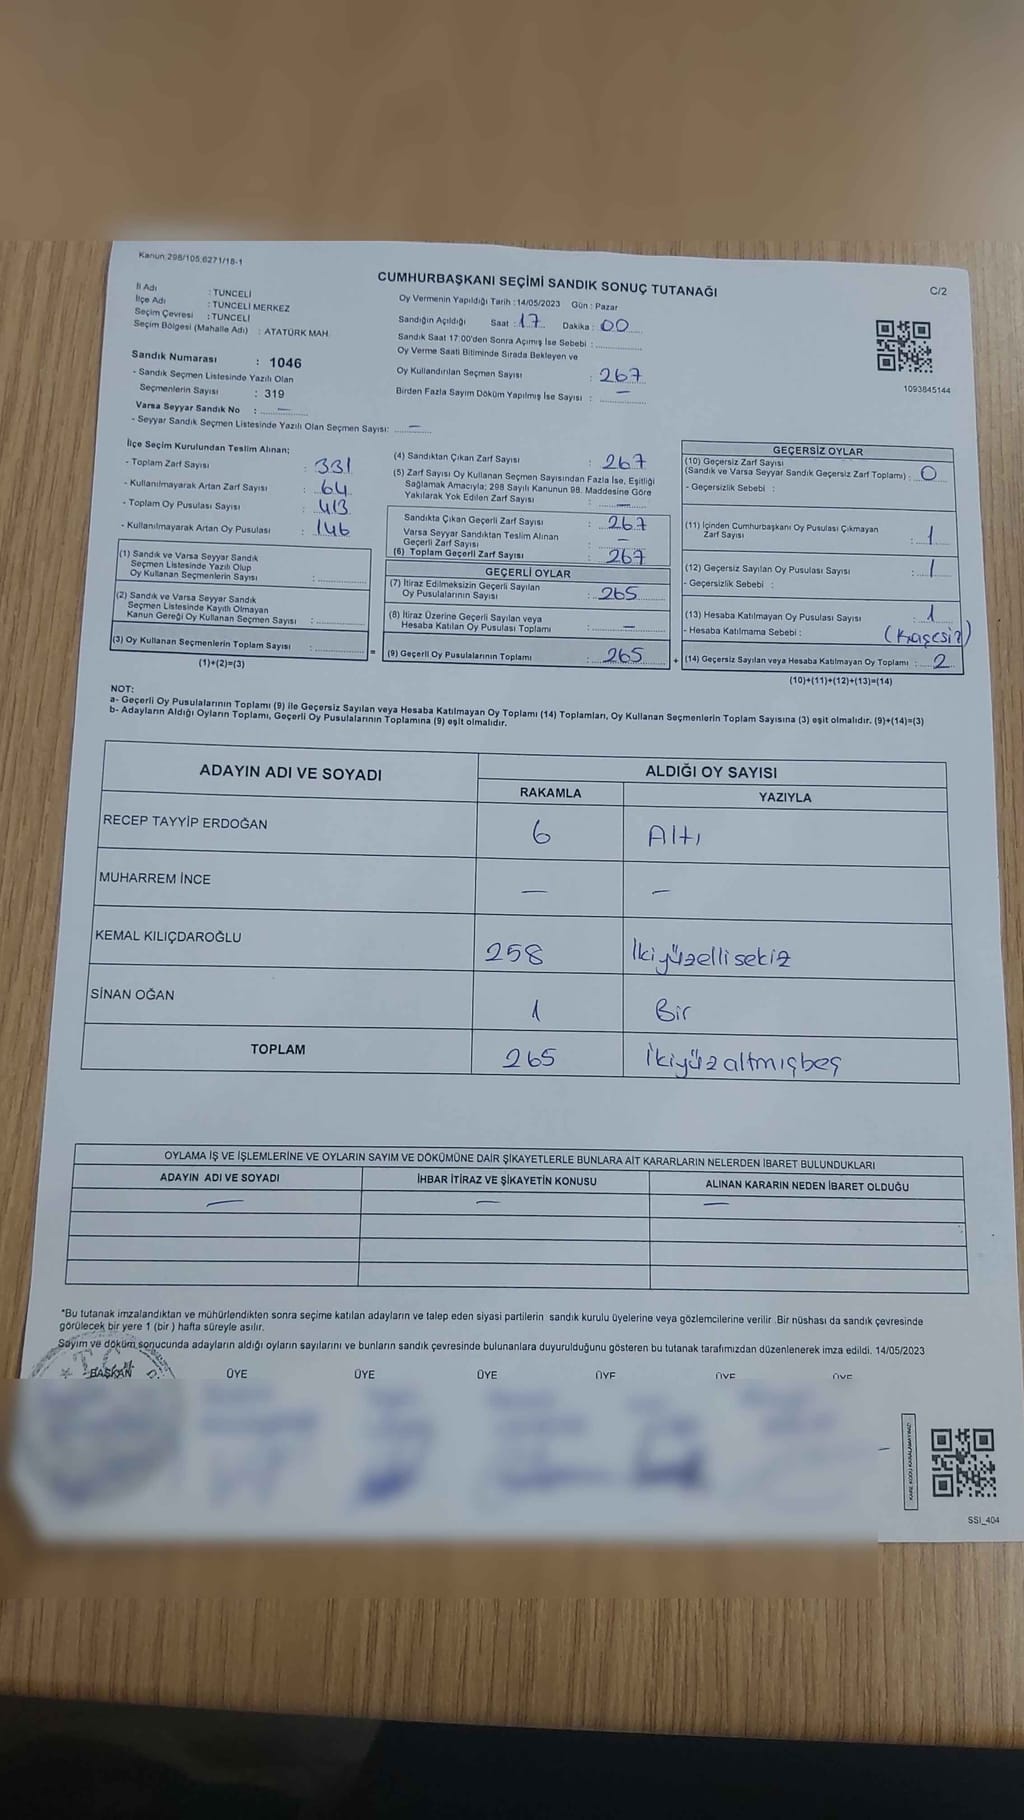 Kanun,298/105,6271/18-1
CUMHURBAŞKANI SEÇİMİ SANDIK SONUÇ TUTANAĞI
C/2
İl Adı : TUNCELİ
İlçe Adı : TUNCELİ MERKEZ
Seçim Çevresi : TUNCELİ
Seçim Bölgesi (Mahalle Adı) : ATATÜRK MAH.
Sandık Numarası : 1046
- Sandık Seçmen Listesinde Yazılı Olan
Seçmenlerin Sayısı : 319
Varsa Seyyar Sandık No : —
- Seyyar Sandık Seçmen Listesinde Yazılı Olan Seçmen Sayısı: —
Oy Vermenin Yapıldığı Tarih :14/05/2023 Gün : Pazar
Sandığın Açıldığı Saat : 17 Dakika : 00
Sandık Saat 17:00'den Sonra Açımış İse Sebebi :
Oy Verme Saati Bitiminde Sırada Bekleyen ve
Oy Kullandırılan Seçmen Sayısı : 267
Birden Fazla Sayım Döküm Yapılmış İse Sayısı : —
1093845144
İlçe Seçim Kurulundan Teslim Alınan;
- Toplam Zarf Sayısı : 331
- Kullanılmayarak Artan Zarf Sayısı : 64
- Toplam Oy Pusulası Sayısı : 413
- Kullanılmayarak Artan Oy Pusulası : 146
(1) Sandık ve Varsa Seyyar Sandık
Seçmen Listesinde Yazılı Olup
Oy Kullanan Seçmenlerin Sayısı :
(2) Sandık ve Varsa Seyyar Sandık
Seçmen Listesinde Kayıtlı Olmayan
Kanun Gereği Oy Kullanan Seçmen Sayısı :
(3) Oy Kullanan Seçmenlerin Toplam Sayısı :
(1)+(2)=(3)
=
(4) Sandıktan Çıkan Zarf Sayısı : 267
(5) Zarf Sayısı Oy Kullanan Seçmen Sayısından Fazla İse, Eşitliği
Sağlamak Amacıyla; 298 Sayılı Kanunun 98. Maddesine Göre
Yakılarak Yok Edilen Zarf Sayısı : —
Sandıkta Çıkan Geçerli Zarf Sayısı : 267
Varsa Seyyar Sandıktan Teslim Alınan
Geçerli Zarf Sayısı : —
(6) Toplam Geçerli Zarf Sayısı : 267
GEÇERLİ OYLAR
(7) İtiraz Edilmeksizin Geçerli Sayılan
Oy Pusulalarının Sayısı : 265
(8) İtiraz Üzerine Geçerli Sayılan veya
Hesaba Katılan Oy Pusulası Toplamı : —
(9) Geçerli Oy Pusulalarının Toplamı : 265
+
GEÇERSİZ OYLAR
(10) Geçersiz Zarf Sayısı
(Sandık ve Varsa Seyyar Sandık Geçersiz Zarf Toplamı) : 0
- Geçersizlik Sebebi :
(11) İçinden Cumhurbaşkanı Oy Pusulası Çıkmayan
Zarf Sayısı : 1
(12) Geçersiz Sayılan Oy Pusulası Sayısı : 1
- Geçersizlik Sebebi :
(13) Hesaba Katılmayan Oy Pusulası Sayısı : 1
- Hesaba Katılmama Sebebi : (Kaşesiz)
(14) Geçersiz Sayılan veya Hesaba Katılmayan Oy Toplamı : 2
(10)+(11)+(12)+(13)=(14)
NOT:
a- Geçerli Oy Pusulalarının Toplamı (9) ile Geçersiz Sayılan veya Hesaba Katılmayan Oy Toplamı (14) Toplamları, Oy Kullanan Seçmenlerin Toplam Sayısına (3) eşit olmalıdır. (9)+(14)=(3)
b- Adayların Aldığı Oyların Toplamı, Geçerli Oy Pusulalarının Toplamına (9) eşit olmalıdır.
ADAYIN ADI VE SOYADI ALDIĞI OY SAYISI
RAKAMLA YAZIYLA
RECEP TAYYİP ERDOĞAN 6 Altı
MUHARREM İNCE — —
KEMAL KILIÇDAROĞLU 258 İkiyüzellisekiz
SİNAN OĞAN 1 Bir
TOPLAM 265 İkiyüzaltmışbeş
OYLAMA İŞ VE İŞLEMLERİNE VE OYLARIN SAYIM VE DÖKÜMÜNE DAİR ŞİKAYETLERLE BUNLARA AİT KARARLARIN NELERDEN İBARET BULUNDUKLARI
ADAYIN ADI VE SOYADI İHBAR İTİRAZ VE ŞİKAYETİN KONUSU ALINAN KARARIN NEDEN İBARET OLDUĞU
— — —
*Bu tutanak imzalandıktan ve mühürlendikten sonra seçime katılan adayların ve talep eden siyasi partilerin sandık kurulu üyelerine veya gözlemcilerine verilir .Bir nüshası da sandık çevresinde
görülecek bir yere 1 (bir ) hafta süreyle asılır.
Sayım ve döküm sonucunda adayların aldığı oyların sayılarını ve bunların sandık çevresinde bulunanlara duyurulduğunu gösteren bu tutanak tarafımızdan düzenlenerek imza edildi. 14/05/2023
BAŞKAN ÜYE ÜYE ÜYE ÜYE ÜYE ÜYE
KARE KODU KARALAMAYINIZ!
SSI_404